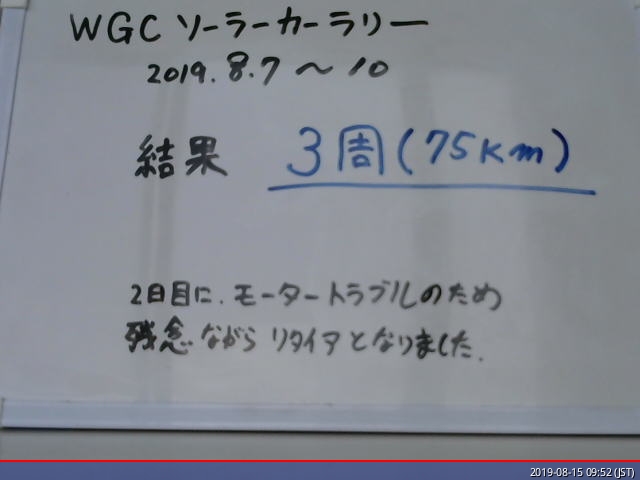 WGC ソーラーカーラリー
2019.8.7〜10
結果 3周(75km)
2日目に、モータートラブルのため
残念ながらリタイアとなりました.
2019-08-15 09:52 (JST)